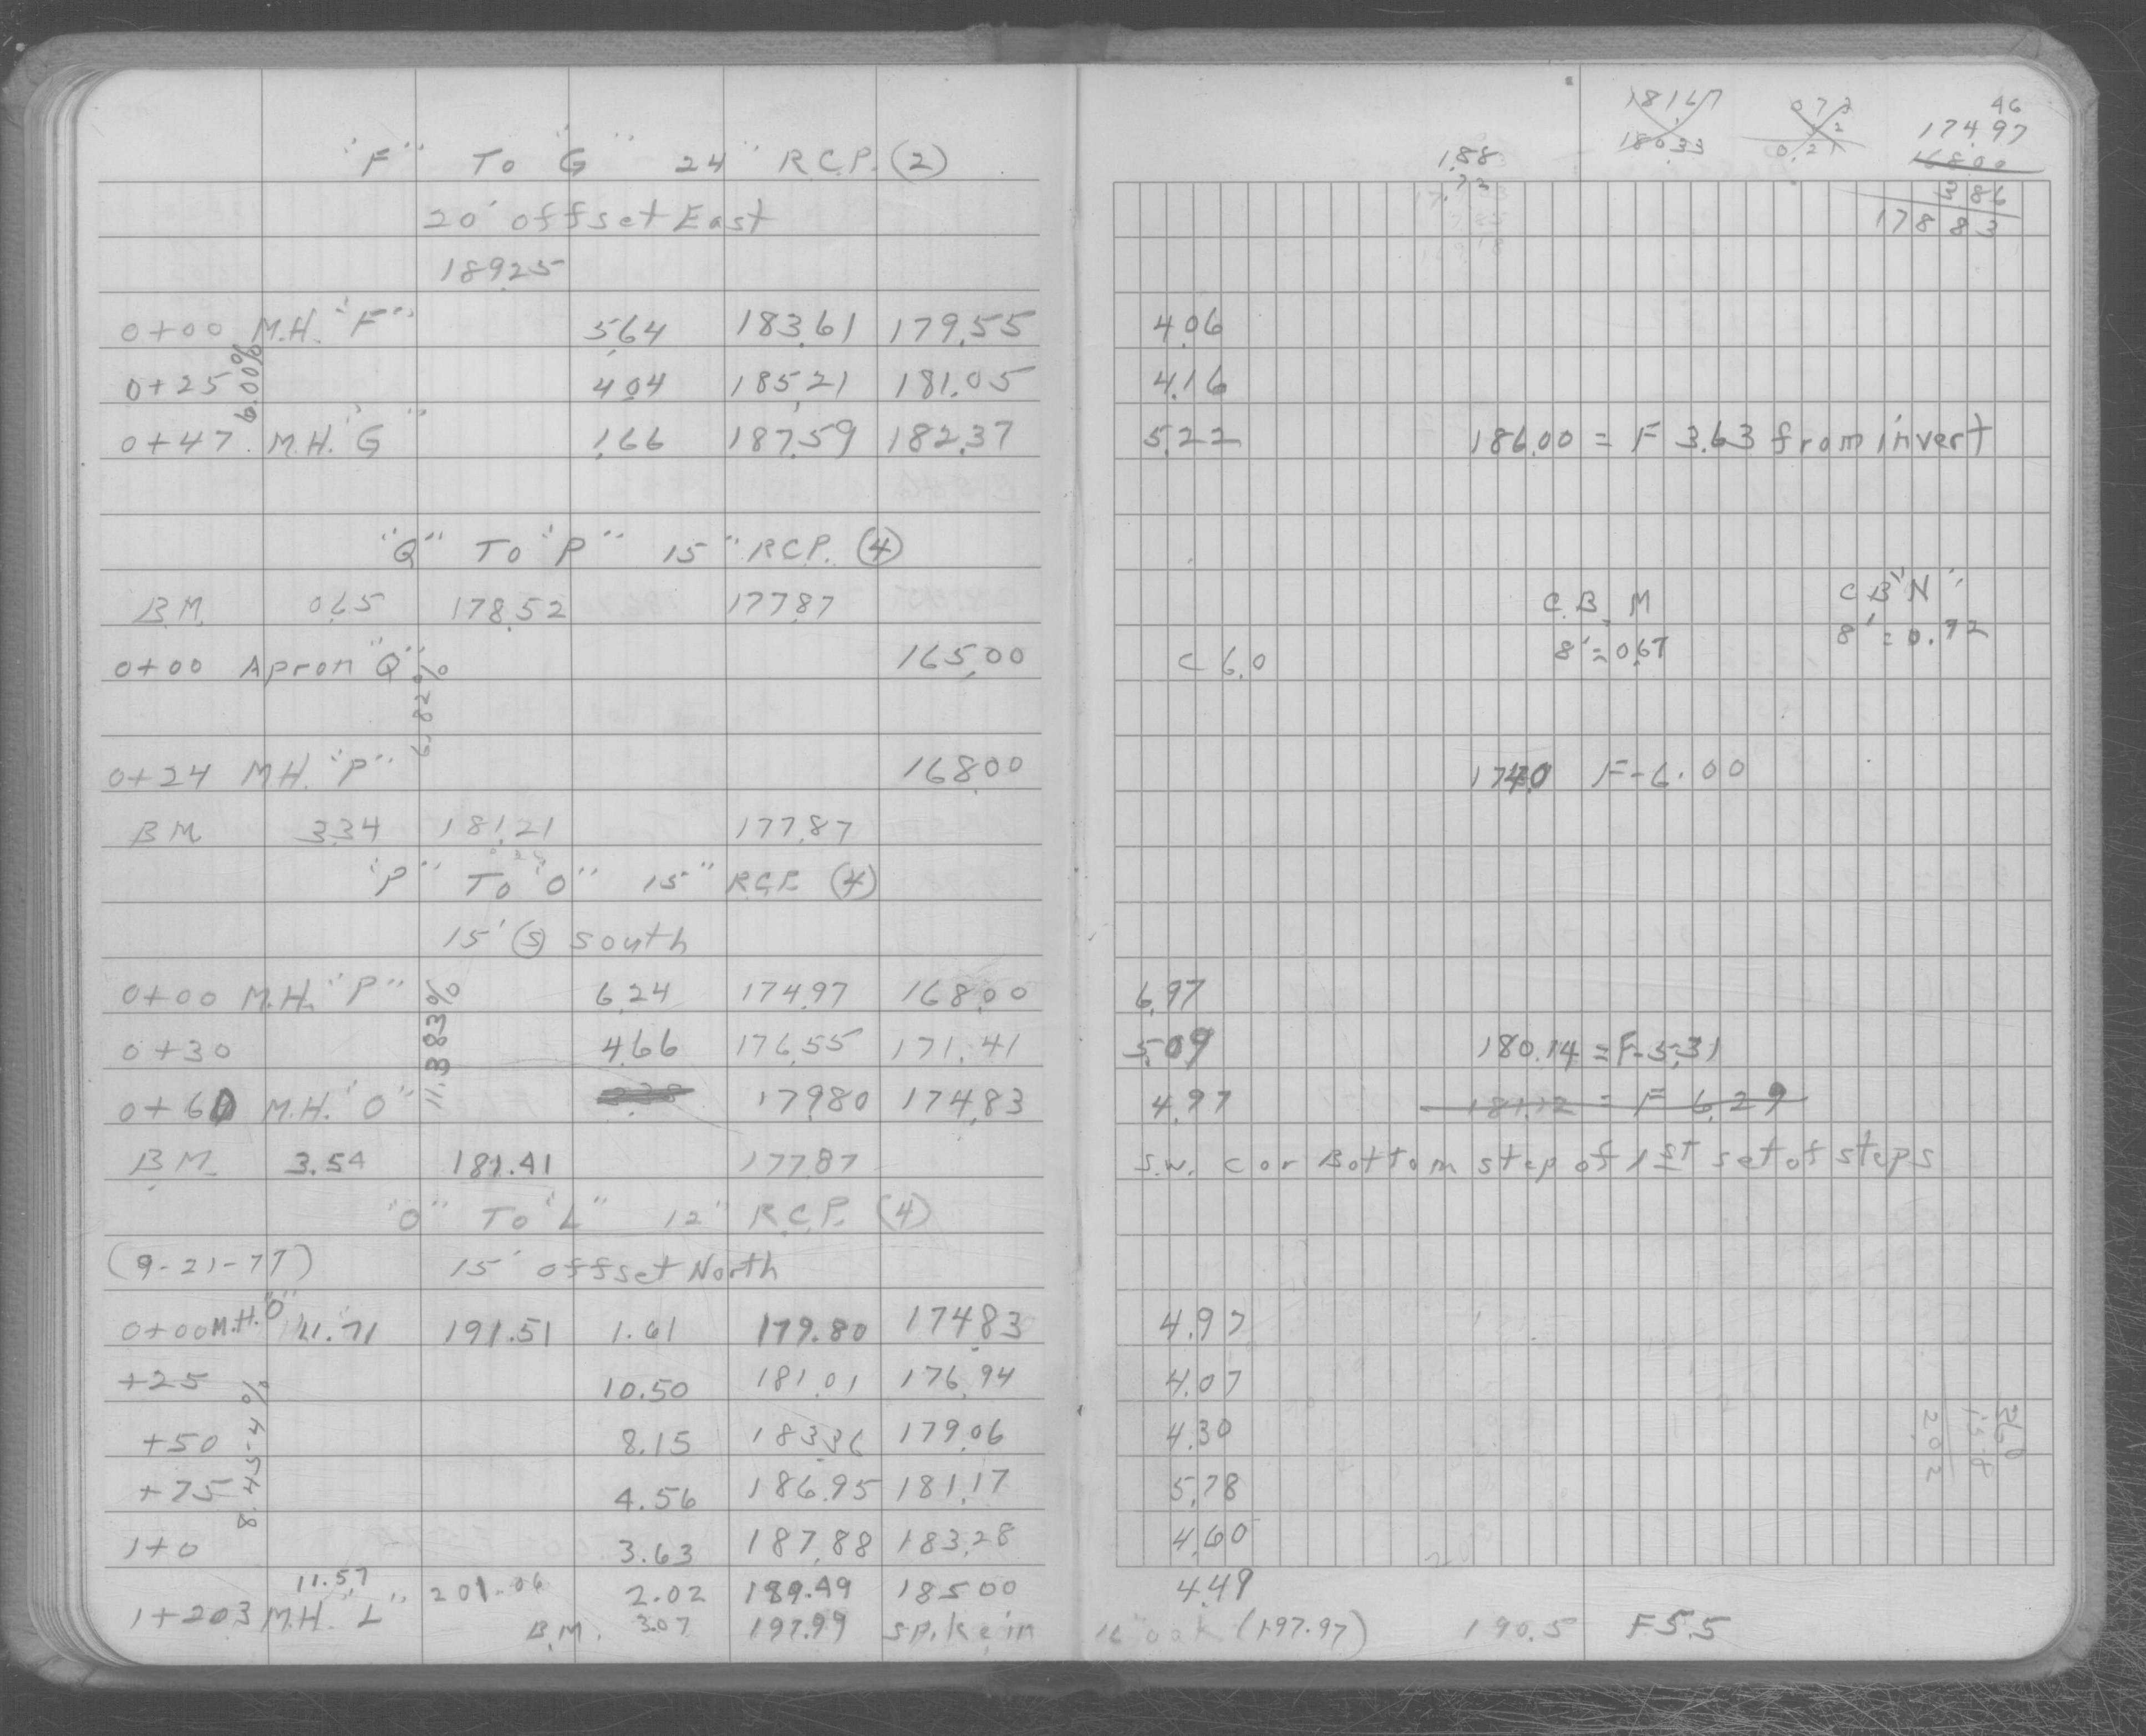 "F" To "G" 24" R.C.P. (2)
20' offset East
189.25
0+00 M.H. "F" 5.64 183.61 179.55 4.06
6.00%
0+25 4.04 185.21 181.05 4.16
0+47 M.H. "G" 1.66 187.59 182.37 5.22 186.00 = F 3.63 from invert
"Q" To "P" 15" R.C.P. (4)
B.M. 0.65 178.52 177.87 C.B. M C B "N"
8' = 0.67 8' = 0.72
0+00 Apron "Q" 165.00 C 6.0
0+24 M.H. "P" 168.00 174.0 F-6.00
BM 3.34 181.21 177.87
"P" To "O" 15" R.C.P. (4)
15' (S) south
0+00 M.H. "P" 6.24 174.97 168.00 6.97
11.383%
0+30 4.66 176.55 171.41 5.09 180.14 = F-5.31
0+60 M.H. "O" 179.80 174.83 4.97 181.12 = F 6.29
B.M. 3.54 181.41 177.87 S.W. Cor Bottom step of 1ST set of steps
"O" To "L" 12" R.C.P. (4)
(9-21-77) 15' offset North
0+00 M.H. "O" 11.71 191.51 1.61 179.80 174.83 4.97
+25 10.50 181.01 176.94 4.07
8.45-4%
+50 8.15 183.36 179.06 4.30
+75 4.56 186.95 181.17 5.78
1+0 3.63 187.88 183.28 4.60
11.57 201.06
1+20.3 M.H. "L" 2.02 189.49 185.00 4.49
B.M. 3.07 197.99 spike in oak (197.97) 190.5 F 5.5
181.67
180.33
46
174.97
168.00
3 86
178 83
1.88